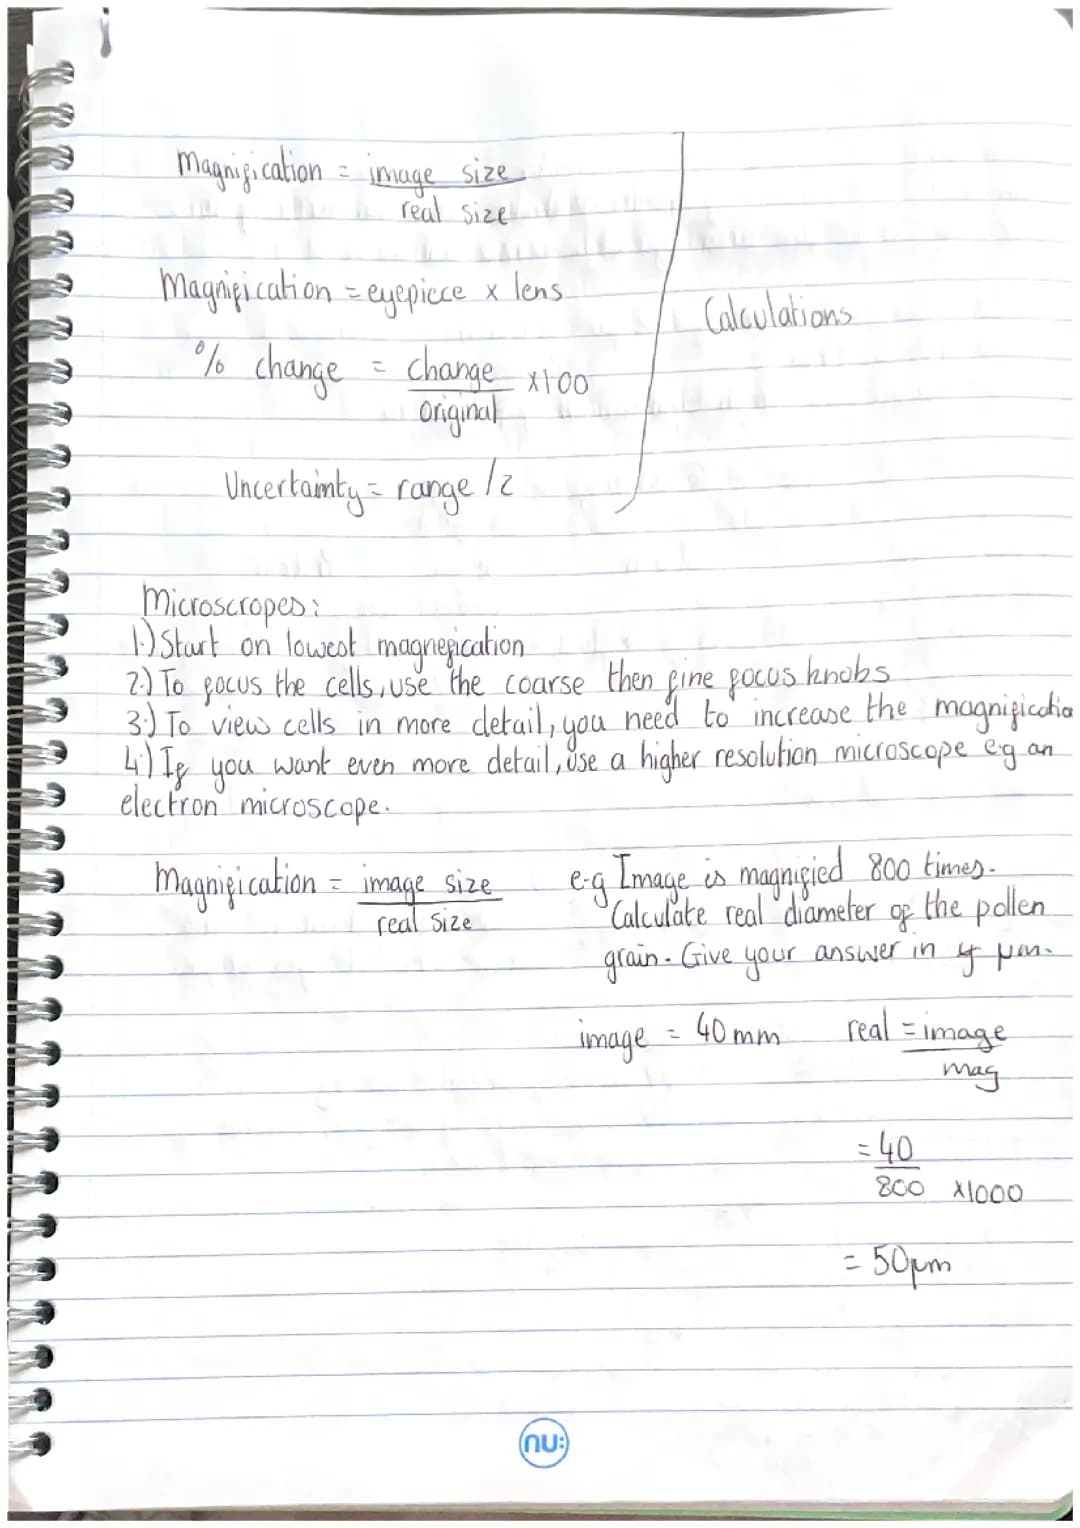 Magnification = image size
real size
Magnification = eyepiece x lens
Calculations
% change = change x100
original
Uncertainty = range /2
Microscropes:
1.) Start on lowest magnefication
2.) To focus the cells, use the coarse then fine focus knobs
3.) To view cells in more detail, you need to increase the magnificatio
4.) If you want even more detail, use a higher resolution microscope e.g an
electron microscope.
Magnification = image size
real size
e.g Image is magnified 800 times.
Calculate real diameter of the pollen
grain. Give your answer in µm.
image = 40mm real = image
mag
= 40
800 x1000
= 50µm
nu: